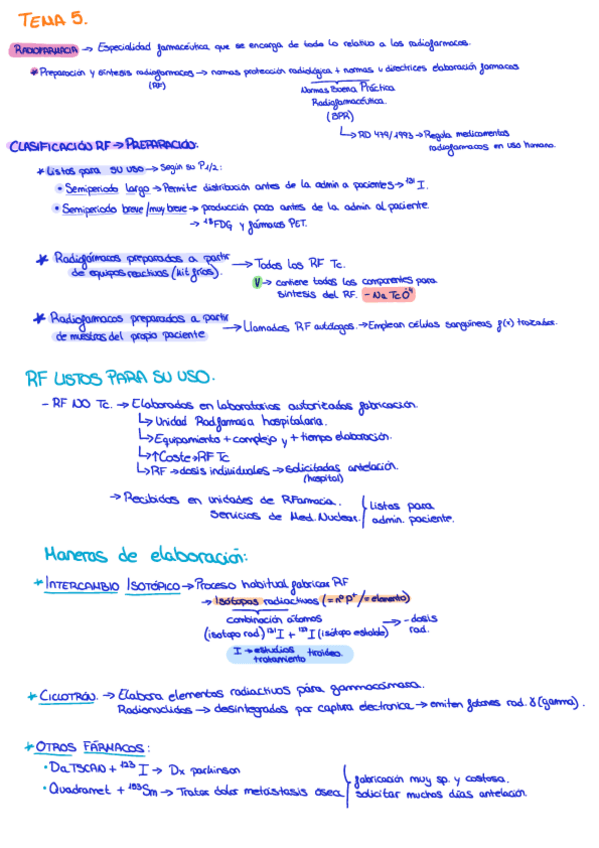 TEMA 5.
RADIOFARMACIA → Especialidad farmacéutica que se encarga de todo lo relativo a los radiofármacos.
* Preparación y síntesis radiofármacos → normas protección radiológica + normas y directrices elaboración fármacos
(RF)
Normas Buena Práctica
Radiofarmacéutica.
(BPR)
↳ RD 479/1993 → Regula medicamentos
radiofármacos en uso humano.
CLASIFICACIÓN RF → PREPARACIÓN.
* Listos para su uso → Según su P1/2:
• Semiperiodo largo → Permite distribución antes de la admin a pacientes → ¹³¹I.
• Semiperiodo breve/muy breve → producción poco antes de la admin al paciente.
→ ¹⁸FDG y fármacos PET.
* Radiofármacos preparados a partir → Todos los RF Tc.
de equipos reactivos (kit fríos).
V → contiene todos los componentes para
síntesis del RF. - NaTcO⁴
* Radiofármacos preparados a partir
de muestras del propio paciente → Llamados RF autólogos. → Emplean células sanguíneas f(x) trazador.
RF LISTOS PARA SU USO.
- RF NO Tc. → Elaborados en laboratorios autorizados fabricación.
↳ Unidad Radfarmacia hospitalaria.
↳ Equipamiento + complejo y + tiempo elaboración.
↳ ↑Coste → RF Tc
↳ RF → dosis individuales → solicitadas antelación.
(hospital)
→ Recibidos en unidades de RFarmacia.
Servicios de Med. Nuclear.
Listos para
admin. paciente.
Maneras de elaboración:
+ INTERCAMBIO ISOTÓPICO → Proceso habitual fabricar RF
→ Isótopos radiactivos (= nº P⁺/= elemento)
combinación átomos → - dosis
(isótopo rad) ¹³¹I + ¹²⁷I (isótopo estable) rad.
I → estudios tiroideo.
tratamiento
+ CICLOTRÓN. → Elabora elementos radiactivos para gammacámara.
Radionuclidos → desintegrados por captura electronica → emiten fotones rad. γ (gamma).
+ OTROS FÁRMACOS:
• DaTSCAN + ¹²³I → Dx parkinson
• Quadramet + ¹⁵³Sm → Tratar dolor metástasis ósea
fabricación muy sp. y costosa.
solicitar muchos días antelación.